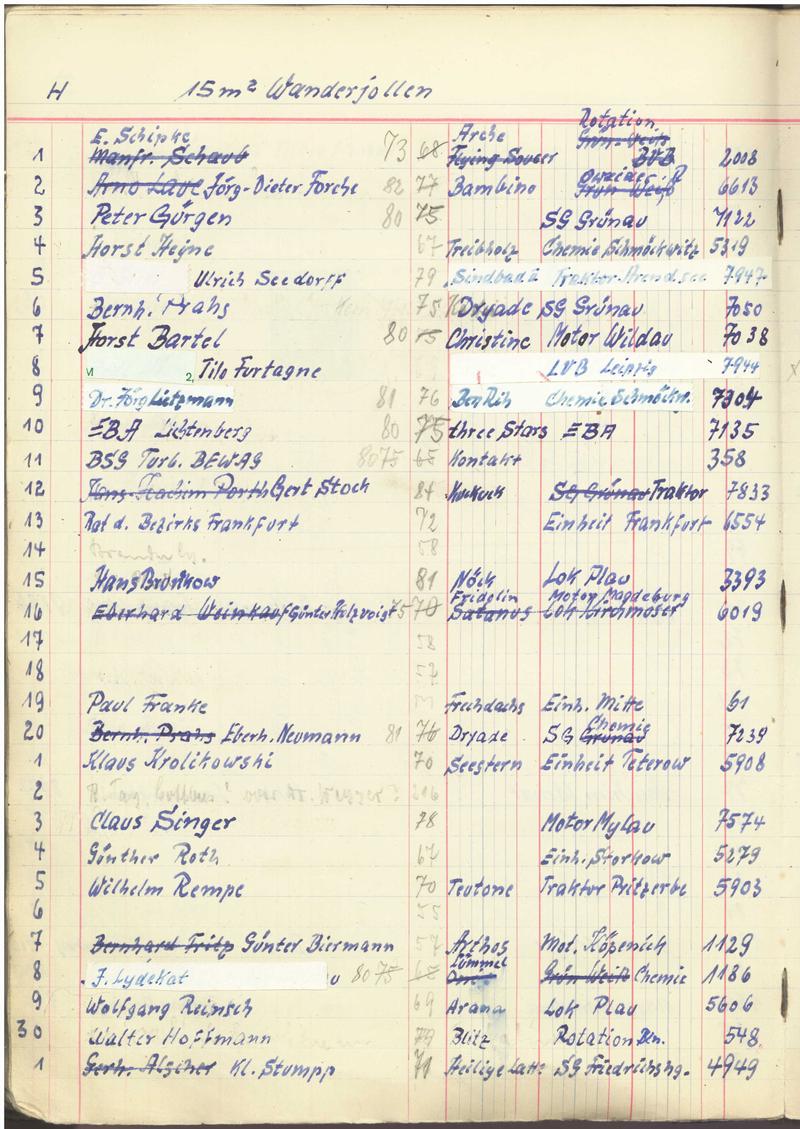 H 15m² Wanderjollen
Rotation
E. Schipke Arche Grün-Weiß
1 Manfr. Schaub 73 68 Flying Soucer BVB 2008
2 Arno Laue Jörg-Dieter Forche 82 77 Bambino Grün Weiß 6613
3 Peter Görgen 80 75 SG Grünau 7122
4 Horst Heyne 67 Treibholz Chemie Schmöckwitz 5319
5 Ulrich Seedorff 79 Sindbad Traktor Arendsee 7947
6 Bernh. Prahs 75 Dryade SG Grünau 7050
7 Horst Bartel 80 75 Christine Motor Wildau 7038
8 2, Tilo Furtagne LVB Leipzig 7944
9 Dr. Jörg Lietzmann 81 76 Ben Rih Chemie Schmöckw. 7304
10 EBA Lichtenberg 80 75 three Stars EBA 7135
11 BSG Turb. BEWAG 80 75 65 Kontakt 358
12 Hans-Joachim Porth Gert Stoch 84 Kuckuck SG Grünau Traktor 7833
13 Rat d. Bezirks Frankfurt 72 Einheit Frankfurt 6554
14 58
15 Hans Bronkow 81 Nöck Lok Plau 3393
Fridolin Motor Magdeburg
16 Eberhard Weinkauf Günter Holzvoigt 75 70 Satanus Lok Kirchmöser 6019
17 58
18 57
19 Paul Franke Frechdachs Einh. Mitte 61
Chemie
20 Bernh. Prahs Eberh. Neumann 81 76 Dryade SG Grünau 7239
1 Klaus Krolikowski 70 Seestern Einheit Teterow 5908
2
3 Claus Singer 78 Motor Mylau 7574
4 Günther Roth 67 Einh. Storkow 5279
5 Wilhelm Rempe 70 Teutone Traktor Pritzerbe 5903
6 55
7 Bernhard Fritz Günter Biermann 57 Arthos Mot. Köpenick 1129
Lümmel
8 F. Lydekat 80 75 68 Grün Weiß Chemie 1186
9 Wolfgang Reinsch 69 Arana Lok Plau 5606
30 Walter Hoffmann 79 Blitz Rotation Bln. 548
1 Gerh. Alscher Kl. Stumpp 71 Heilige Latte SG Friedrichshg. 4949